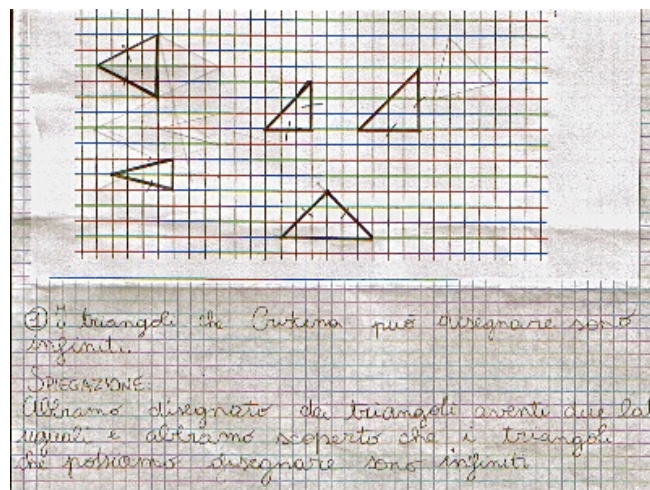 ① I triangoli che Cristina può disegnare sono
infiniti.
SPIEGAZIONE:
Abbiamo disegnato dei triangoli aventi due lat
uguali e abbiamo scoperto che i triangoli
che possiamo disegnare sono infiniti